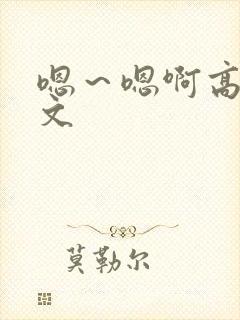 嗯～嗯啊高
文
莫勒尔